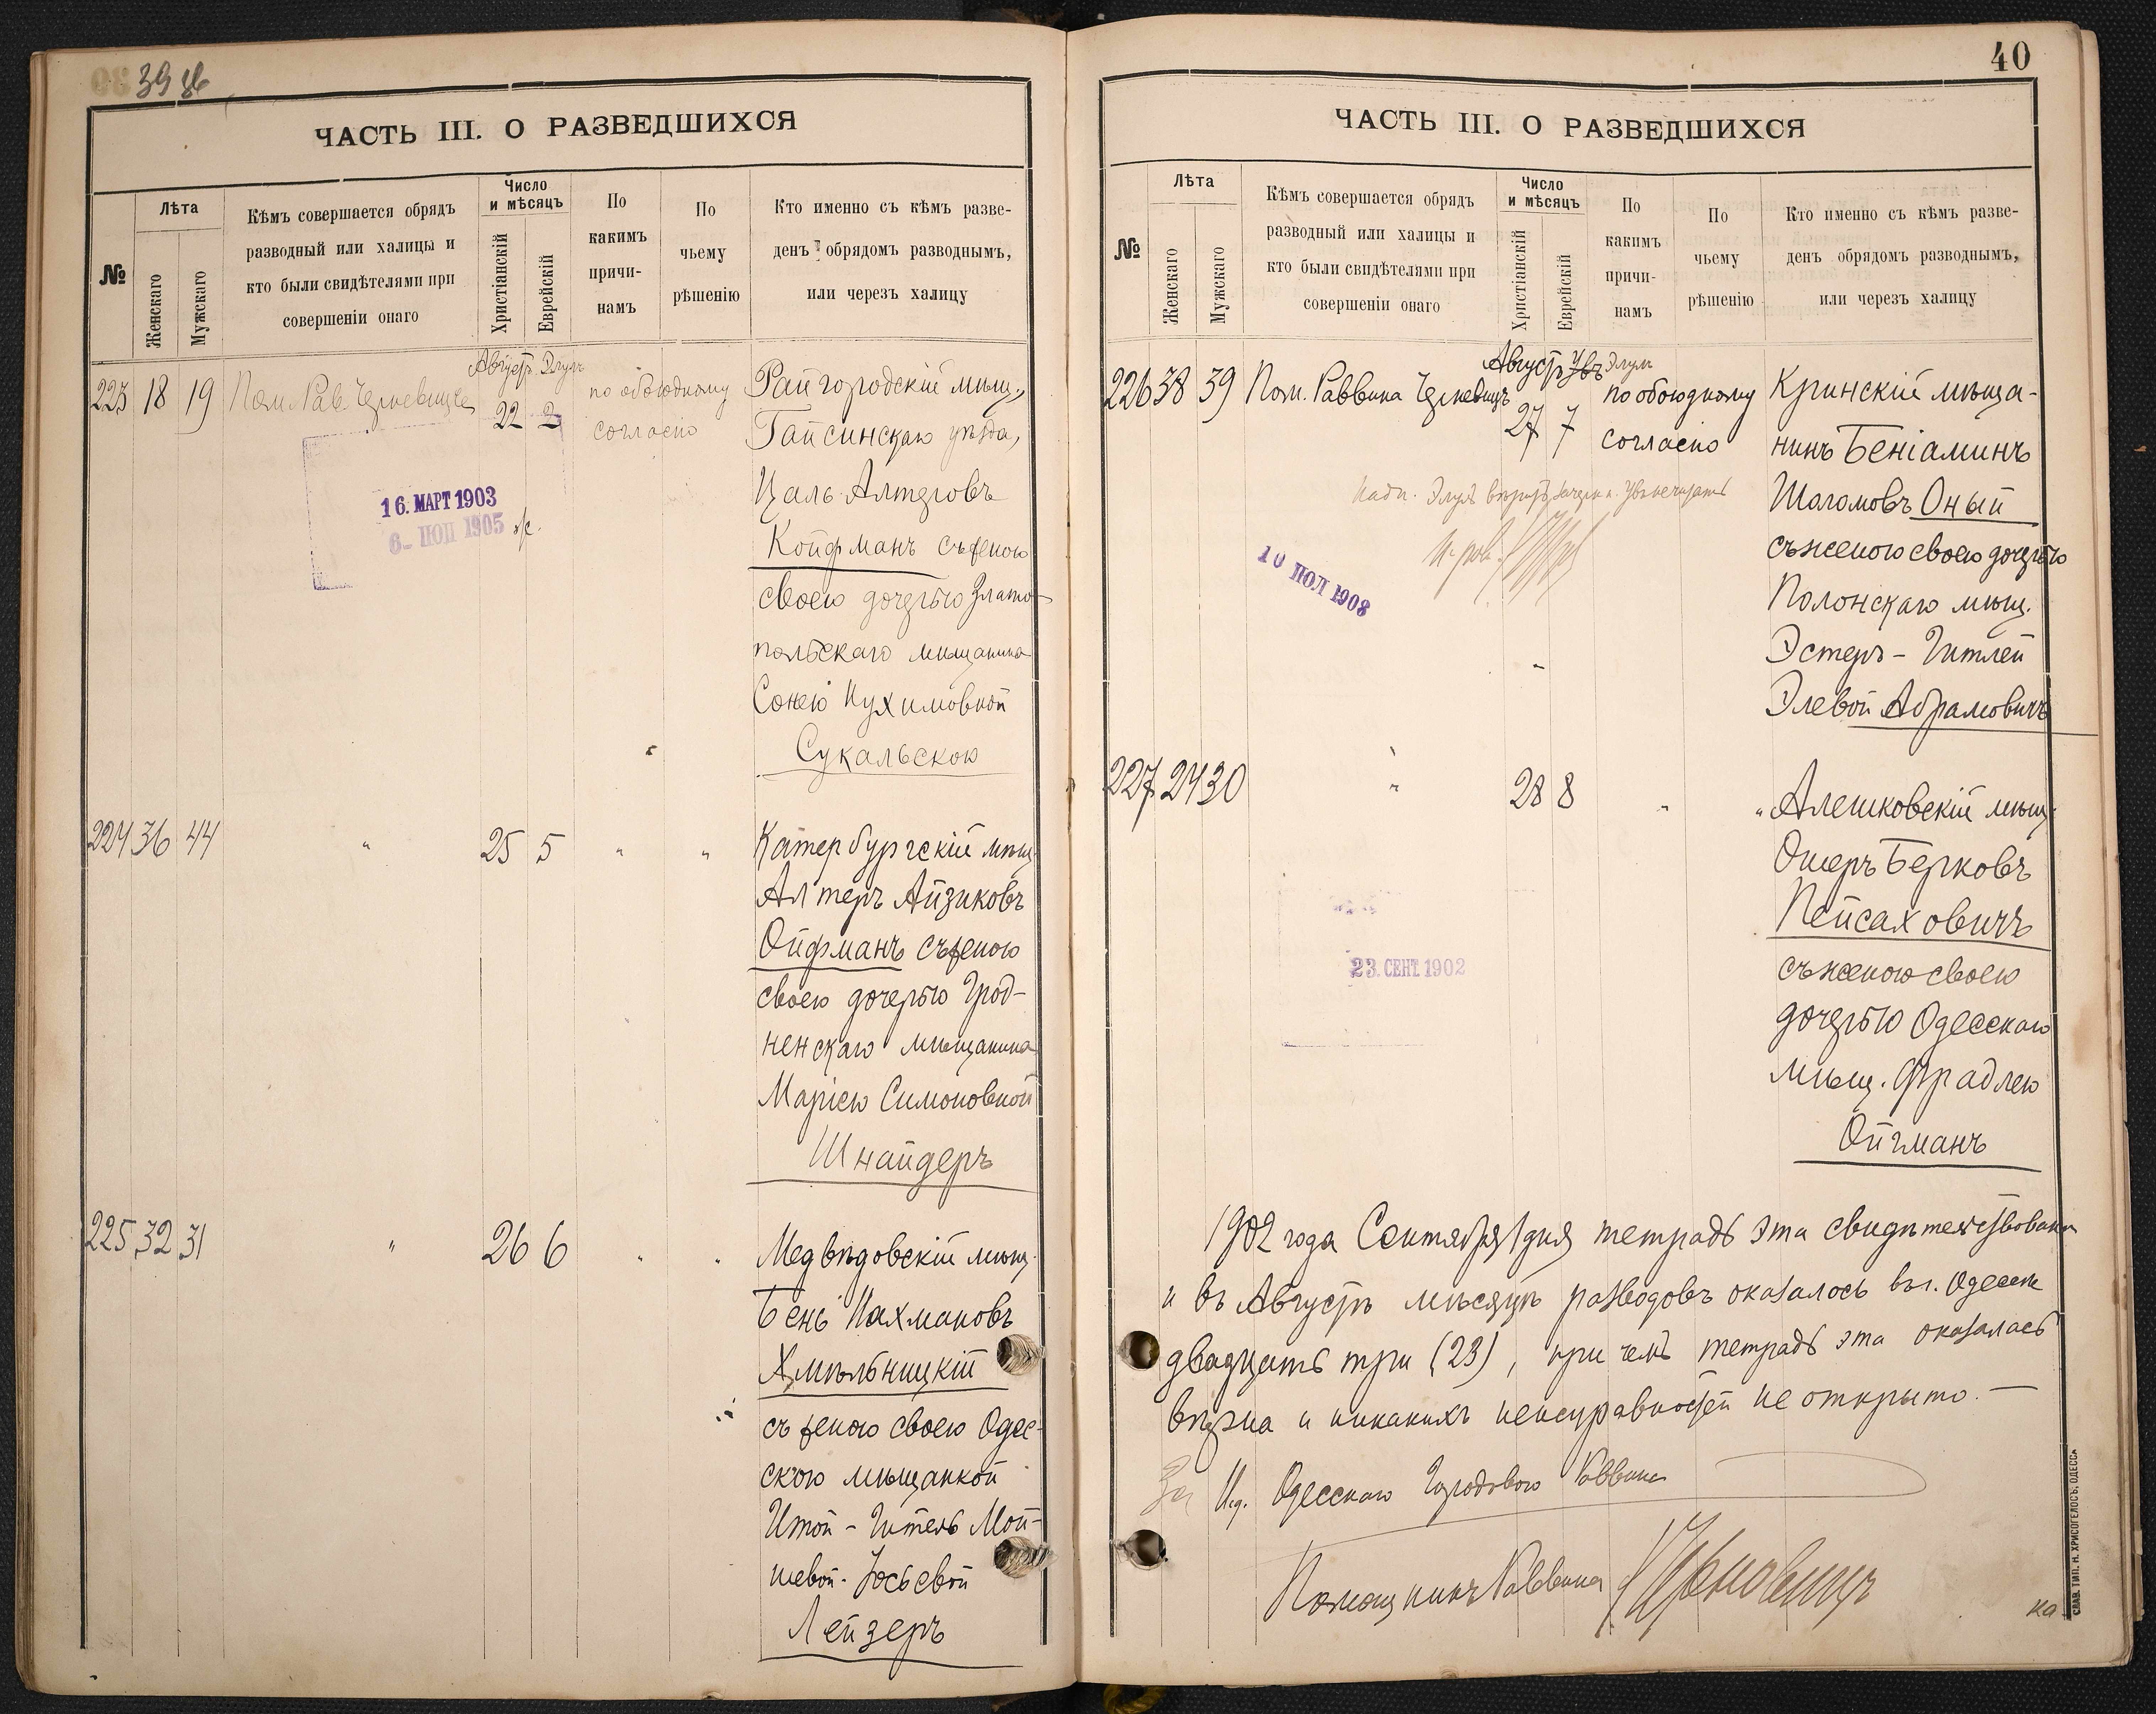 39 об
ЧАСТЬ III. О РАЗВЕДШИХСЯ
№
Лѣта
Женскаго
Мужскаго
Кѣмъ совершается обрядъ
разводный или халицы и
кто были свидѣтелями при
совершеніи онаго
Число
и мѣсяцъ
Христіанскій
Еврейскій
По
какимъ
причи-
намъ
По
чьему
рѣшенію
Кто именно съ кѣмъ разве-
денъ обрядомъ разводнымъ,
или черезъ халицу
Август. Элулъ
223 18 19 Пом. Рав. 22 2 по обоюдному
согласію
Райгородскій мѣщ.,
Гайсинскаго уѣзда,
Цаль Алтеровъ
Койфманъ съ женою
своею дочерью Злато-
польскаго мѣщанина
Сонею Нухимовной
Сукальскою
16. МАРТ 1903
1905
224 36 44 " 25 5 " "
Катербургскій мѣщ.
Алтеръ Айзиковъ
Ойфманъ съ женою
своею дочерью Грод-
ненскаго мѣщанина
Маріею Симоновной
Шнайдеръ
225 32 31 " 26 6 " "
Медвѣдовскій мѣщ.
Бень Нахмановъ
Хмѣльницкій
съ женою своею Одес-
скою мѣщанкой
Итой-Гитель Мой-
шевой-Іосьевой
Лейзеръ
40
ЧАСТЬ III. О РАЗВЕДШИХСЯ
№
Лѣта
Женскаго
Мужскаго
Кѣмъ совершается обрядъ
разводный или халицы и
кто были свидѣтелями при
совершеніи онаго
Число
и мѣсяцъ
Христіанскій
Еврейскій
По
какимъ
причи-
намъ
По
чьему
рѣшенію
Кто именно съ кѣмъ разве-
денъ обрядомъ разводнымъ,
или черезъ халицу
Август. Элулъ
226 38 39 Пом. Раввина 27 7 по обоюдному
согласію
Кринскій мѣща-
нинъ Беніаминъ
Шоломовъ Оный
съ женою своею дочерью
Полонскаго мѣщ.
Эстеръ-Гитлей
Элевой Абрамовичъ
1908
227 24 30 " 28 8 " "
Алешковскій мѣщ.
Ошеръ Берковъ
Пейсаховичъ
съ женою своею
дочерью Одесскаго
мѣщ. Фрадлею
Ойгманъ
23. СЕНТ. 1902
1902 года Сентября 1 дня тетрадь эта свидѣтельствована
и въ Августѣ мѣсяцѣ разводовъ оказалось въ г. Одессѣ
двадцать три (23), при чемъ тетрадь эта оказалась
вѣрна и никакихъ неисправностей не открыто. —
За И.д. Одесскаго Городового Раввина
Помощникъ Раввина
СЛАВ. ТИП. Н. ХРИСОГЕЛОСЪ, ОДЕССА